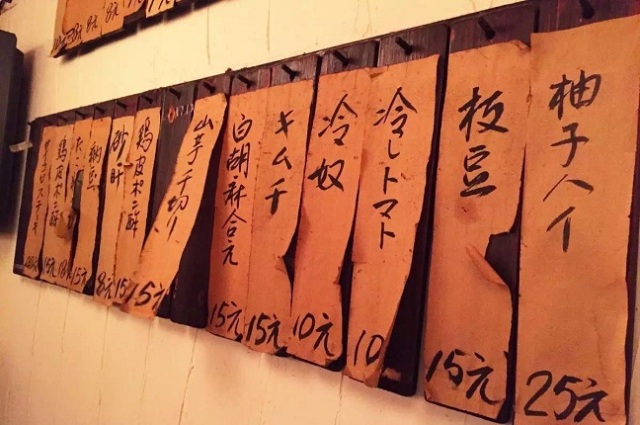 柚子ハイ
25元
枝豆
15元
冷しトマト
10
冷奴
10元
キムチ
15元
白胡麻合え
15元
山芋千切り
15元
鶏皮ポン酢
15
砂肝
8元
納豆
15元